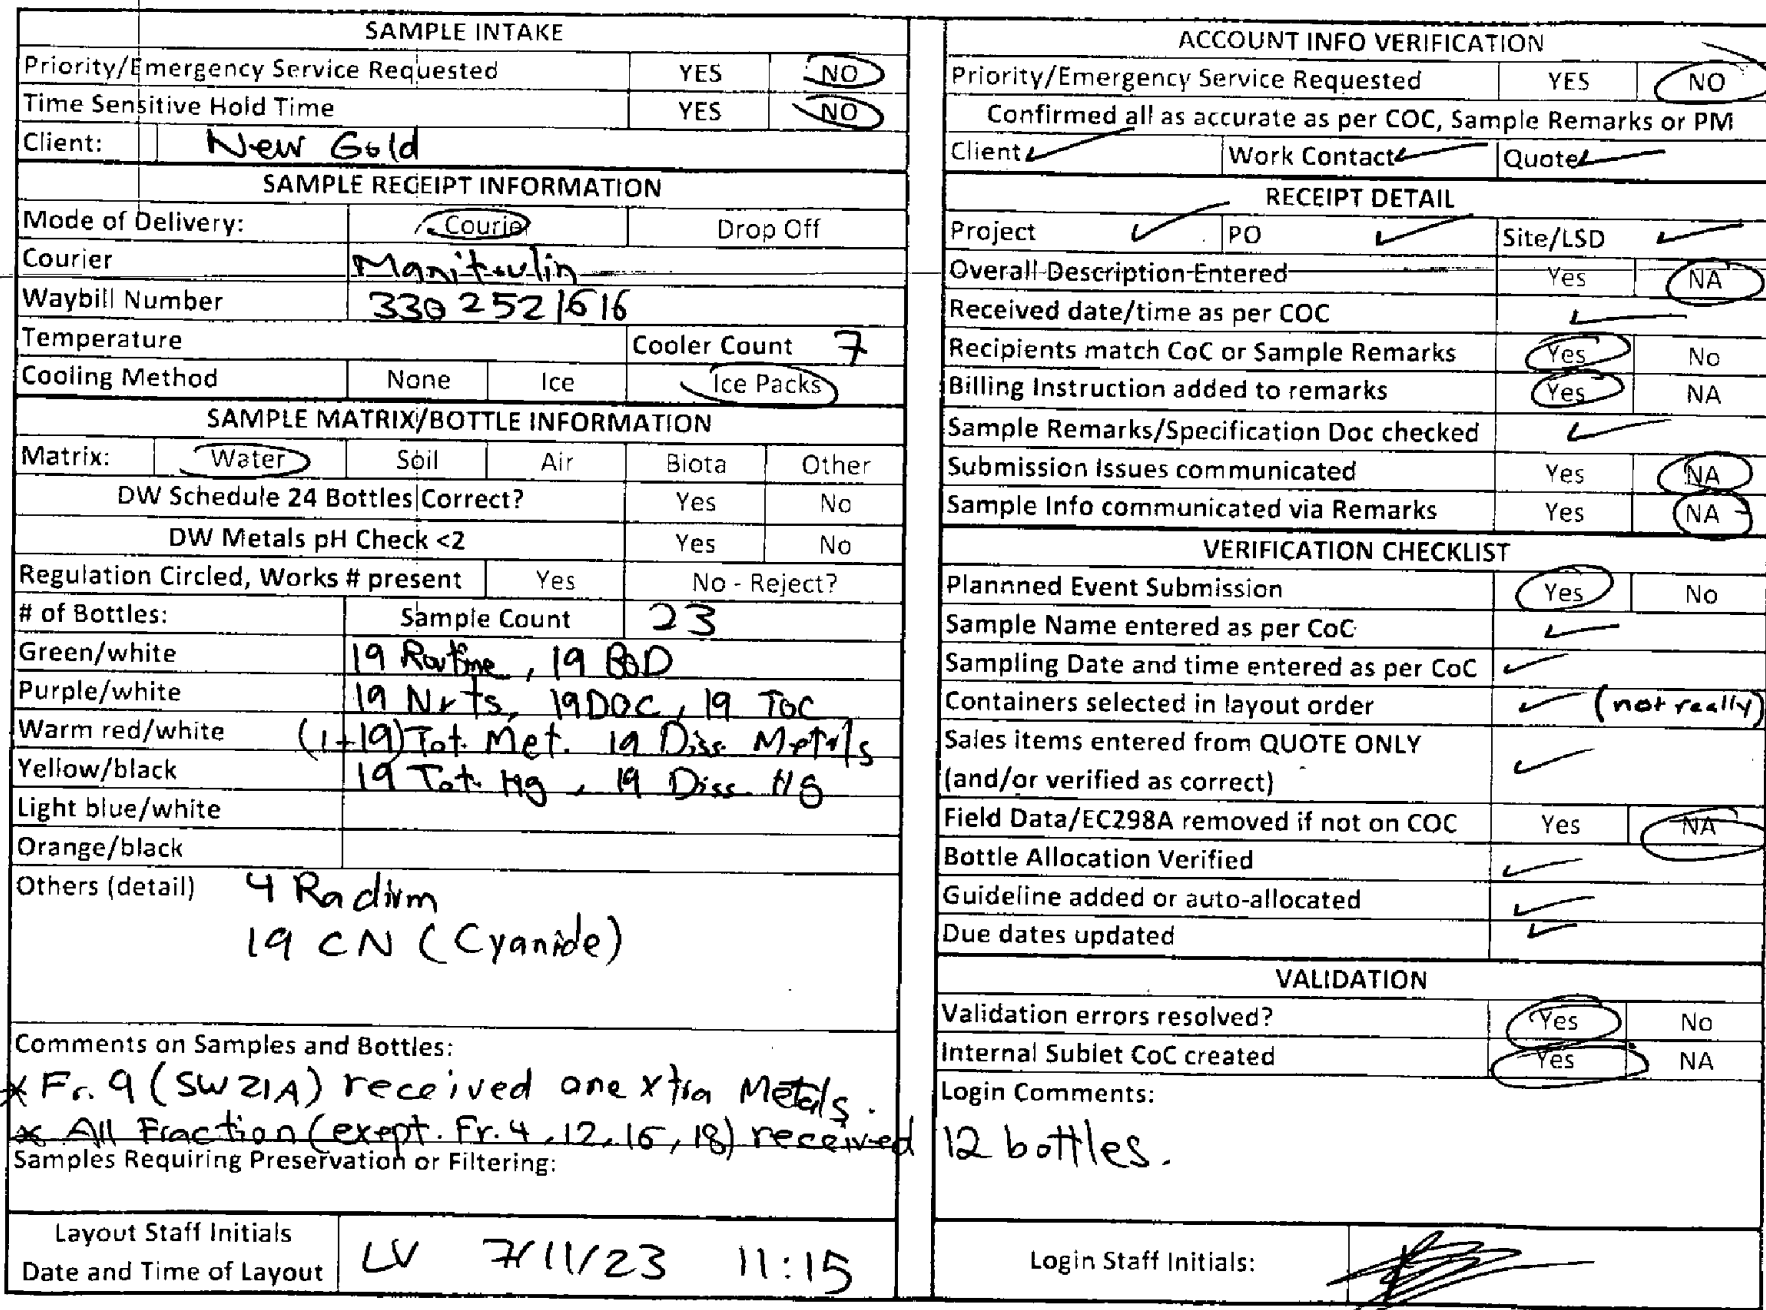 SAMPLE INTAKE
Priority/Emergency Service Requested YES NO
Time Sensitive Hold Time YES NO
Client: New Gold
SAMPLE RECEIPT INFORMATION
Mode of Delivery: Courier Drop Off
Courier Manitoulin
Waybill Number 3302521616
Temperature Cooler Count 7
Cooling Method None Ice Ice Packs
SAMPLE MATRIX/BOTTLE INFORMATION
Matrix: Water Soil Air Biota Other
DW Schedule 24 Bottles Correct? Yes No
DW Metals pH Check <2 Yes No
Regulation Circled, Works # present Yes No - Reject?
# of Bottles: Sample Count 23
Green/white 19 Routine, 19 BOD
Purple/white 19 Nrts, 19 DOC, 19 TOC
Warm red/white (1+19) Tot. Met. 19 Diss. Metals
Yellow/black 19 Tot. Hg, 19 Diss. Hg
Light blue/white
Orange/black
Others (detail) 4 Radium
19 CN (Cyanide)
Comments on Samples and Bottles:
* Fr. 9 (SW21A) received one xtra Metals.
* All Fraction (exept. Fr. 4, 12, 16, 18) received
Samples Requiring Preservation or Filtering:
Layout Staff Initials
Date and Time of Layout LV 7/11/23 11:15
ACCOUNT INFO VERIFICATION
Priority/Emergency Service Requested YES NO
Confirmed all as accurate as per COC, Sample Remarks or PM
Client Work Contact Quote
RECEIPT DETAIL
Project PO Site/LSD
Overall Description Entered Yes NA
Received date/time as per COC
Recipients match CoC or Sample Remarks Yes No
Billing Instruction added to remarks Yes NA
Sample Remarks/Specification Doc checked
Submission Issues communicated Yes NA
Sample Info communicated via Remarks Yes NA
VERIFICATION CHECKLIST
Plannned Event Submission Yes No
Sample Name entered as per CoC
Sampling Date and time entered as per CoC
Containers selected in layout order (not really)
Sales items entered from QUOTE ONLY
(and/or verified as correct)
Field Data/EC298A removed if not on COC Yes NA
Bottle Allocation Verified
Guideline added or auto-allocated
Due dates updated
VALIDATION
Validation errors resolved? Yes No
Internal Sublet CoC created Yes NA
Login Comments:
12 bottles.
Login Staff Initials: